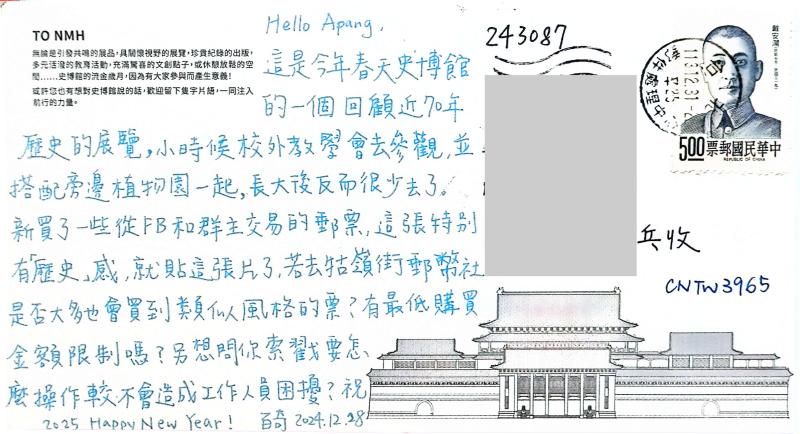 TO NMH
無論是引發共鳴的展品，具關懷視野的展覽，珍貴紀錄的出版，
多元活潑的教育活動，充滿驚喜的文創點子，或休憩放鬆的空
間……史博館的流金歲月，因為有大家參與而產生意義！
或許您也有想對史博館說的話，歡迎留下隻字片語，一同注入
前行的力量。
Hello Apang,
這是今年春天史博館
的一個回顧近70年
歷史的展覽，小時候校外教學會去參觀，並
搭配旁邊植物園一起，長大後反而很少去了。
新買了一些從FB和群主交易的郵票，這張特別
有「歷史」感，就貼這張片了，若去牯嶺街郵幣社
是否大多也會買到類似風格的票？有最低購買
金額限制嗎？另想問你索戳要怎
麼操作較不會造成工作人員困擾？祝
2025 Happy New Year! 百奇 2024.12.28
243087
兵收
CNTW3965
戴安瀾
500
中華民國郵票
REPUBLIC OF CHINA